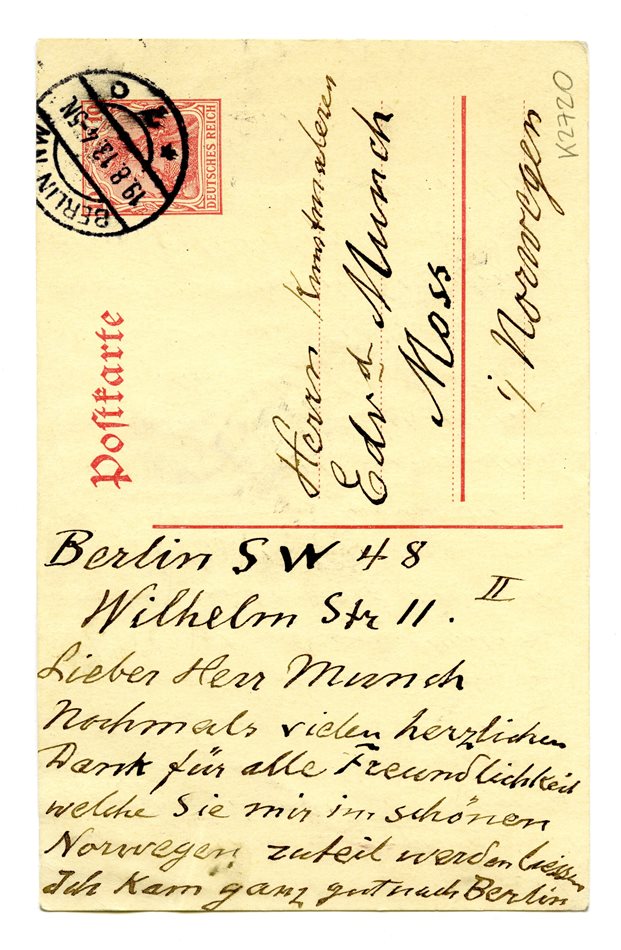 K2720
BERLIN
19.8.13.4-5N.
DEUTSCHES REICH
Postkarte
Herrn Kunstmaleren
Edvd Munch
Moss
i/ Norwegen
Berlin SW 48
Wilhelm Str 11. II
Lieber Herr Munch
Nochmals vielen herzlichen
Dank für alle Freundlichkeit
welche Sie mir im schönen
Norwegen zuteil werden liessen
Ich kam ganz gut nach Berlin